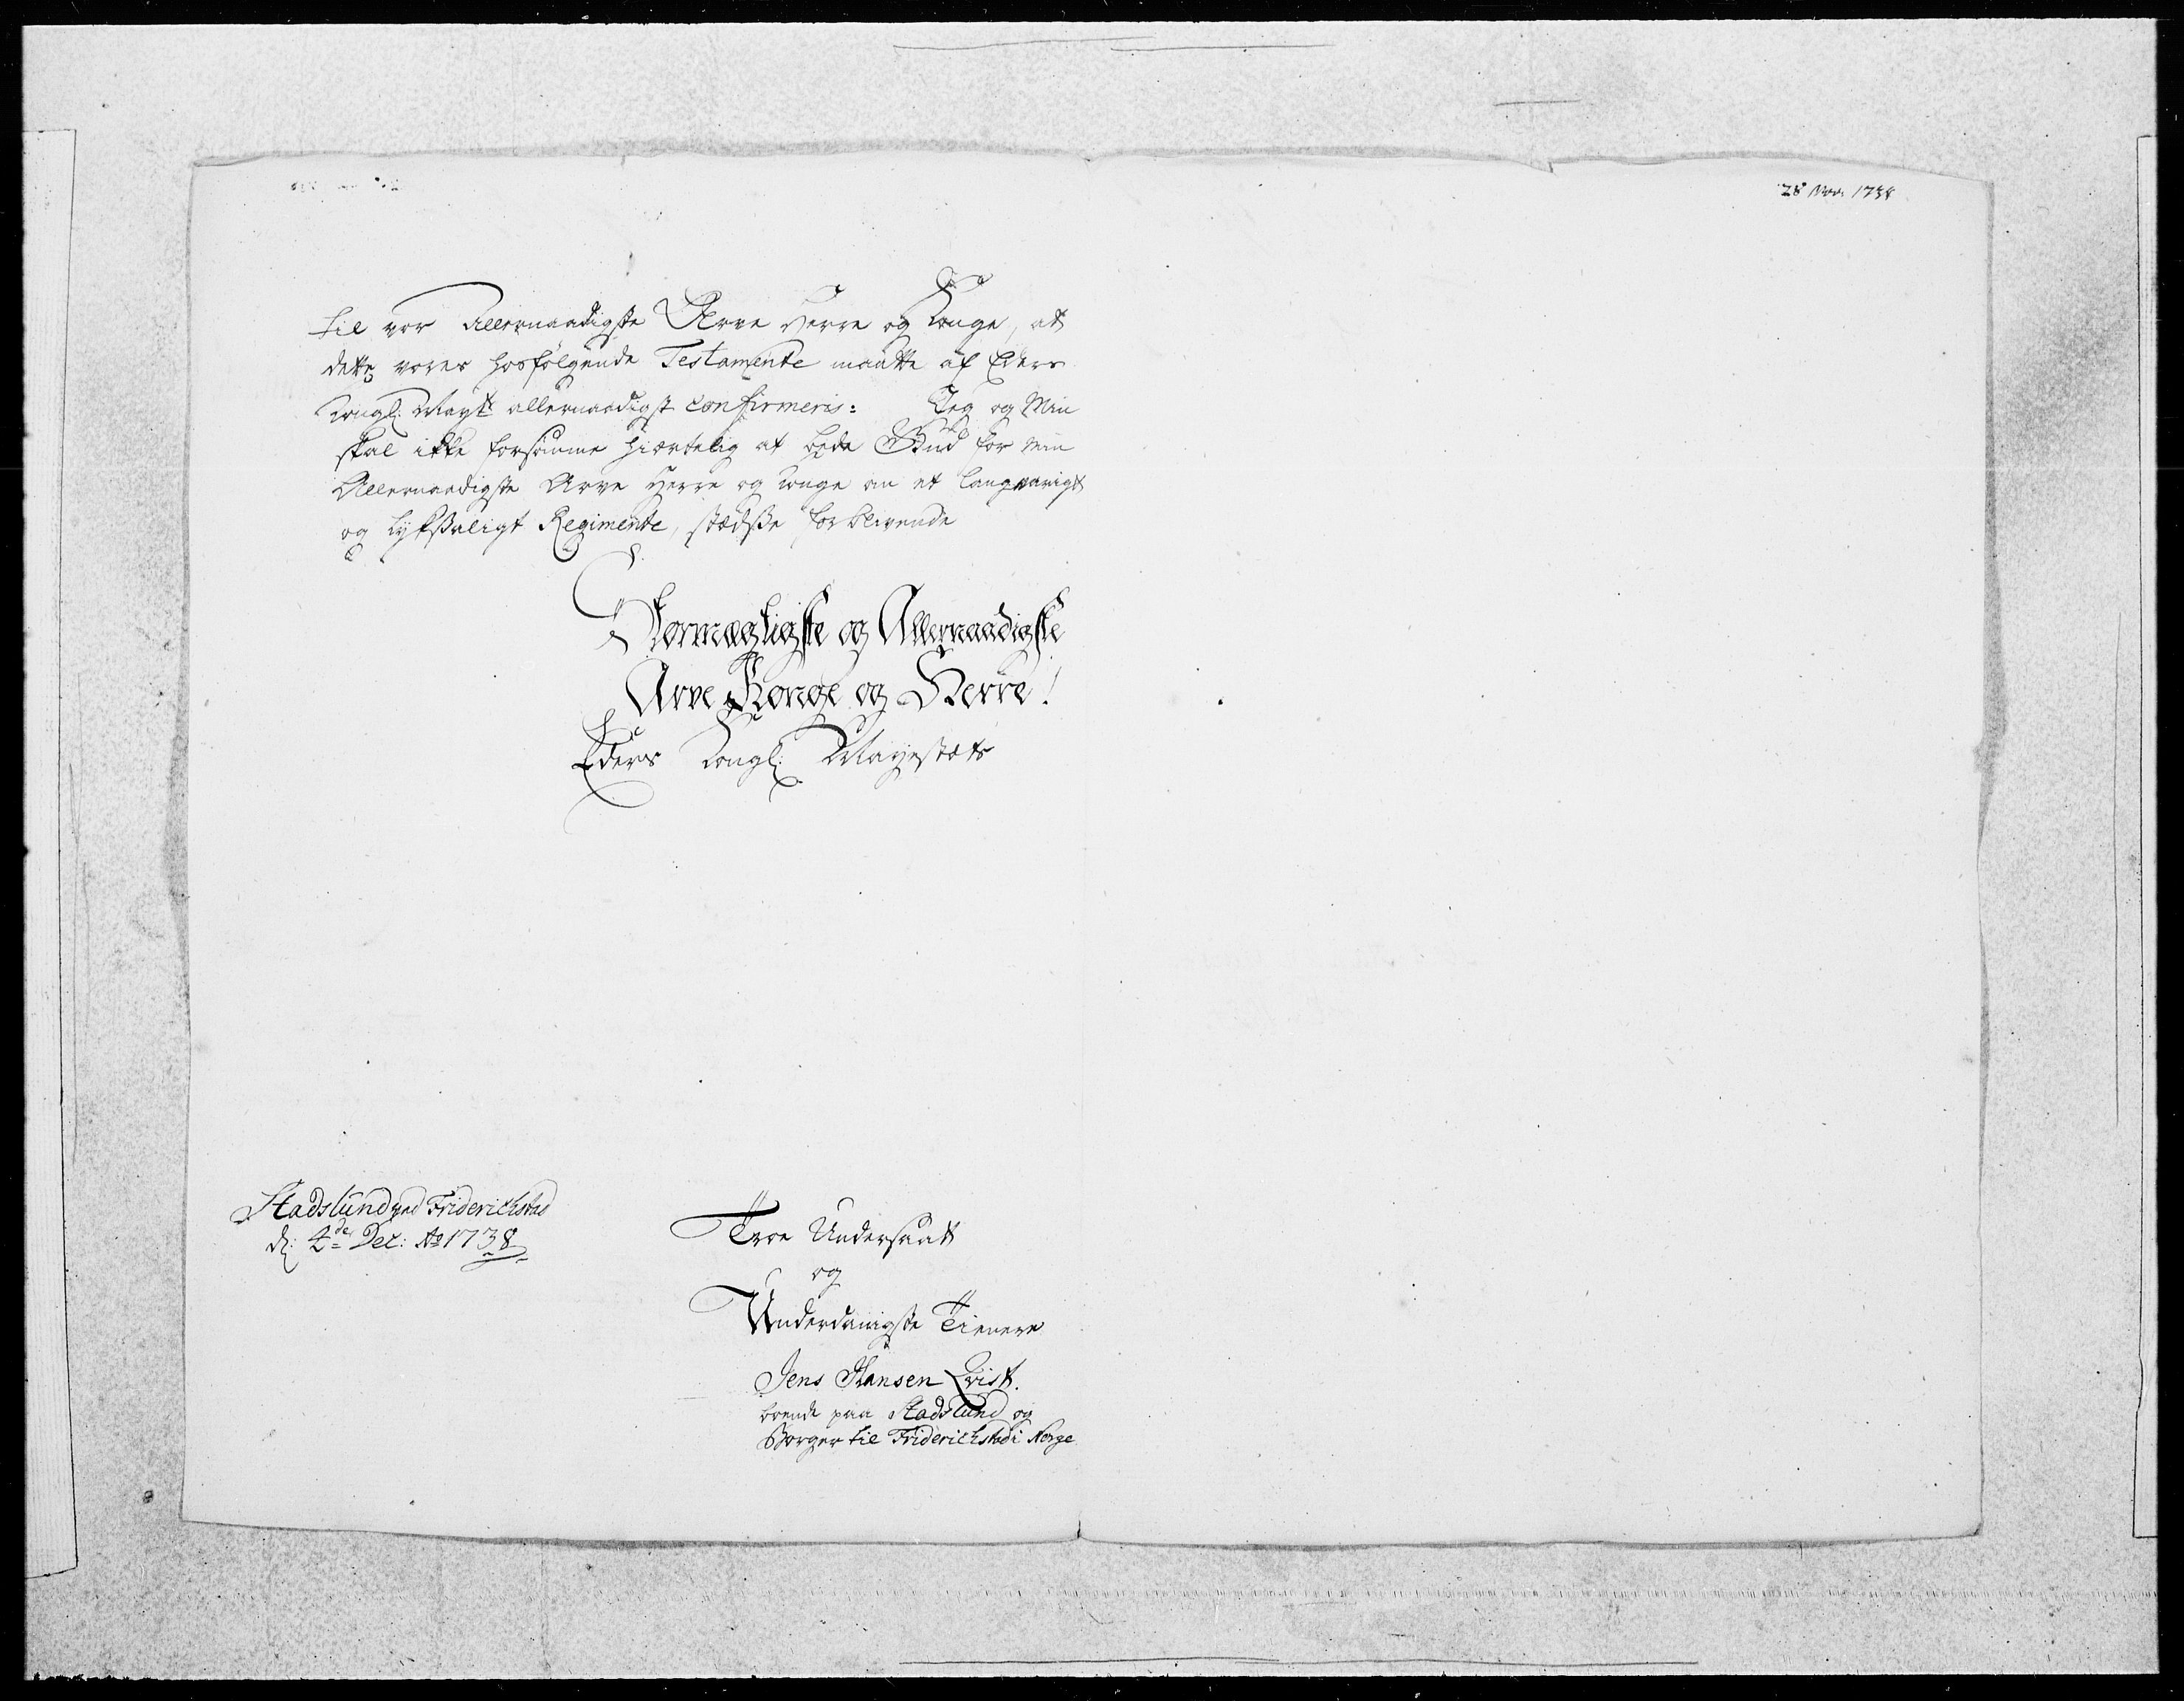 28 Nov. 1738
til vor Allernaadigste Arve Herre og Konge, at
dette vores hosfølgende Testamente maatte af Eders
Kongl: Mayt: allernaadigst confirmeris: Jeg og Min
skal ikke forsømme hiærtelig at bede Gud for min
Allernaadigste Arve Herre og Konge om et langvarigt
og lyksaligt Regimente, stædsse forblivende
Stormægtigste og Allernaadigste
Arve Konge og Herre!
Eders Kongl: Mayestæts
Stadslund ved Friderichstad
d: 4de Dec: Ao 1738
Troe Undersaatt
og
Underdanigste Tienere
Jens Hansen Qvist.
boende paa Stadslund og
Borger til Friderichstad i Norge